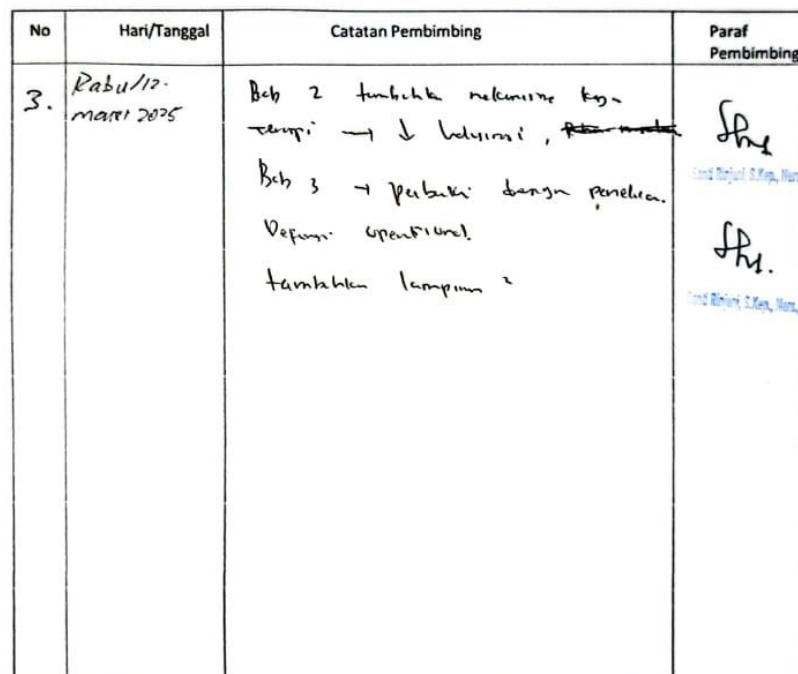 No Hari/Tanggal Catatan Pembimbing Paraf Pembimbing
3. Rabu/12. maret 2025
Bab 2 tambahkan mekanisme
terapi → ↓ halusinasi,
Bab 3 → perbaiki penelitian.
Definisi operasional.
tambahkan lampiran 2
S.Kep., Ners
S.Kep., Ners.,